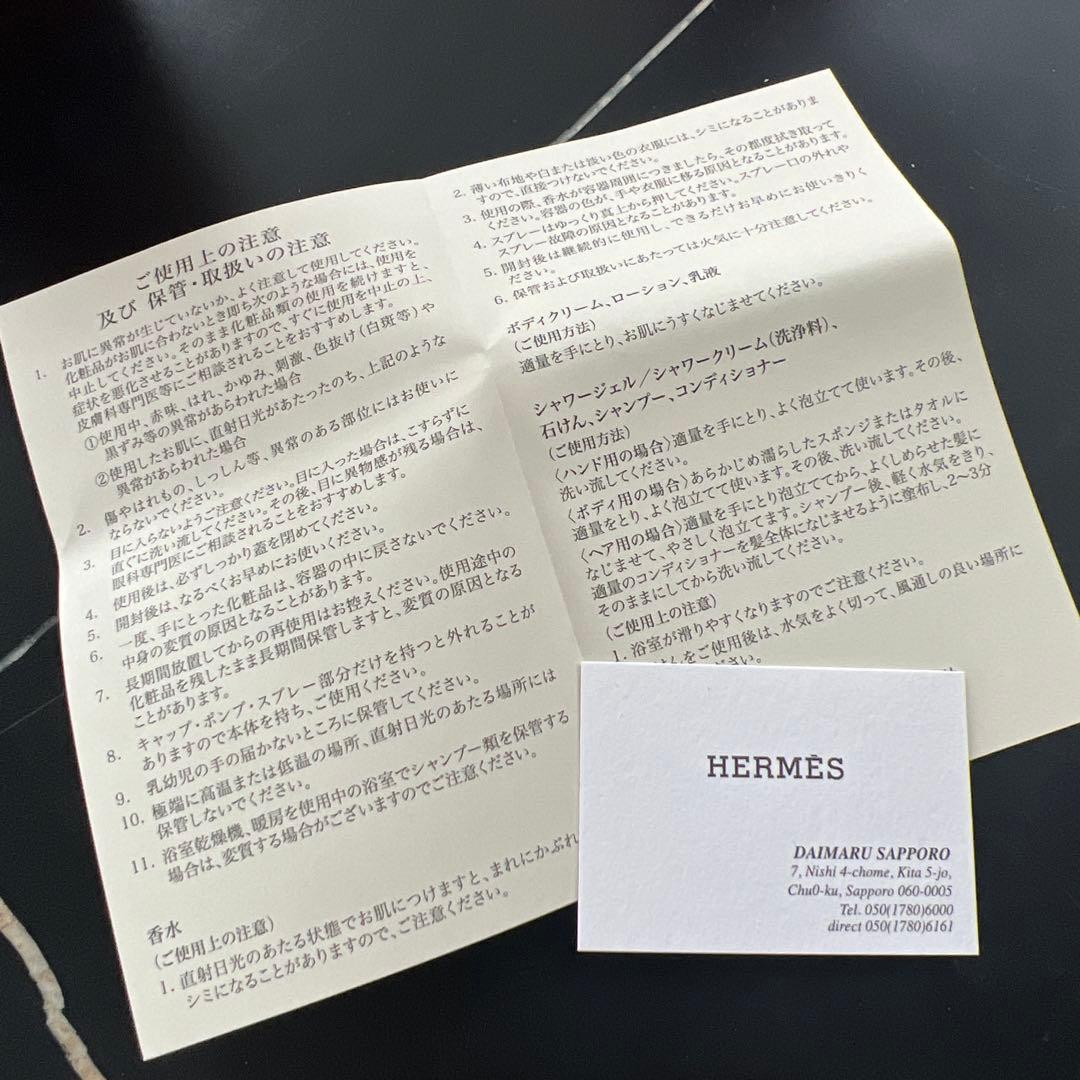 ご使用上の注意
及び 保管・取扱いの注意
1. お肌に異常が生じていないか、よく注意して使用してください。
化粧品がお肌に合わないとき即ち次のような場合には、使用を
中止してください。そのまま化粧品類の使用を続けますと、
症状を悪化させることがありますので、すぐに使用を中止の上、
皮膚科専門医等にご相談されることをおすすめします。
①使用中、赤味、はれ、かゆみ、刺激、色抜け(白斑等)や
黒ずみ等の異常があらわれた場合
②使用したお肌に、直射日光があたったのち、上記のような
異常があらわれた場合
2. 傷やはれもの、しっしん等、異常のある部位にはお使いに
ならないでください。
3. 目に入らないようご注意ください。目に入った場合は、こすらずに
直ぐに洗い流してください。その後、目に異物感が残る場合は、
眼科専門医にご相談されることをおすすめします。
4. 使用後は、必ずしっかり蓋を閉めてください。
5. 開封後は、なるべくお早めにお使いください。
6. 一度、手にとった化粧品は、容器の中に戻さないでください。
中身の変質の原因となることがあります。
7. 長期間放置してからの再使用はお控えください。使用途中の
化粧品を残したまま長期間保管しますと、変質の原因となる
ことがあります。
8. キャップ・ポンプ・スプレー部分だけを持つと外れることが
ありますので本体を持ち、ご使用ください。
9. 乳幼児の手の届かないところに保管してください。
10. 極端に高温または低温の場所、直射日光のあたる場所には
保管しないでください。
11. 浴室乾燥機、暖房を使用中の浴室でシャンプー類を保管する
場合は、変質する場合がございますのでご注意ください。
香水
(ご使用上の注意)
1. 直射日光のあたる状態でお肌につけますと、まれにかぶれ
シミになることがありますので、ご注意ください。
2. 薄い布地や白または淡い色の衣服には、シミになることがありま
すので、直接つけないでください。
3. 使用の際、香水が容器周囲につきましたら、その都度拭き取って
ください。容器の色が、手や衣服に移る原因となることがあります。
4. スプレーはゆっくり真上から押してください。スプレー口の外れや
スプレー故障の原因となることがあります。
5. 開封後は継続的に使用し、できるだけお早めにお使いきりく
ださい。
6. 保管および取扱いにあたっては火気に十分注意してください。
ボディクリーム、ローション、乳液
(ご使用方法)
適量を手にとり、お肌にうすくなじませてください。
シャワージェル/シャワークリーム(洗浄料)、
石けん、シャンプー、コンディショナー
(ご使用方法)
〈ハンド用の場合〉適量を手にとり、よく泡立てて使います。その後、
洗い流してください。
〈ボディ用の場合〉あらかじめ濡らしたスポンジまたはタオルに
適量をとり、よく泡立てて使います。その後、洗い流してください。
〈ヘア用の場合〉適量を手にとり泡立ててから、よくしめらせた髪に
なじませて、やさしく泡立てます。シャンプー後、軽く水気をきり、
適量のコンディショナーを髪全体になじませるように塗布し、2〜3分
そのままにしてから洗い流してください。
(ご使用上の注意)
1. 浴室が滑りやすくなりますのでご注意ください。
けんをご使用後は、水気をよく切って、風通しの良い場所に
ださい。
HERMÈS
DAIMARU SAPPORO
7, Nishi 4-chome, Kita 5-jo,
Chu0-ku, Sapporo 060-0005
Tel. 050(1780)6000
direct 050(1780)6161